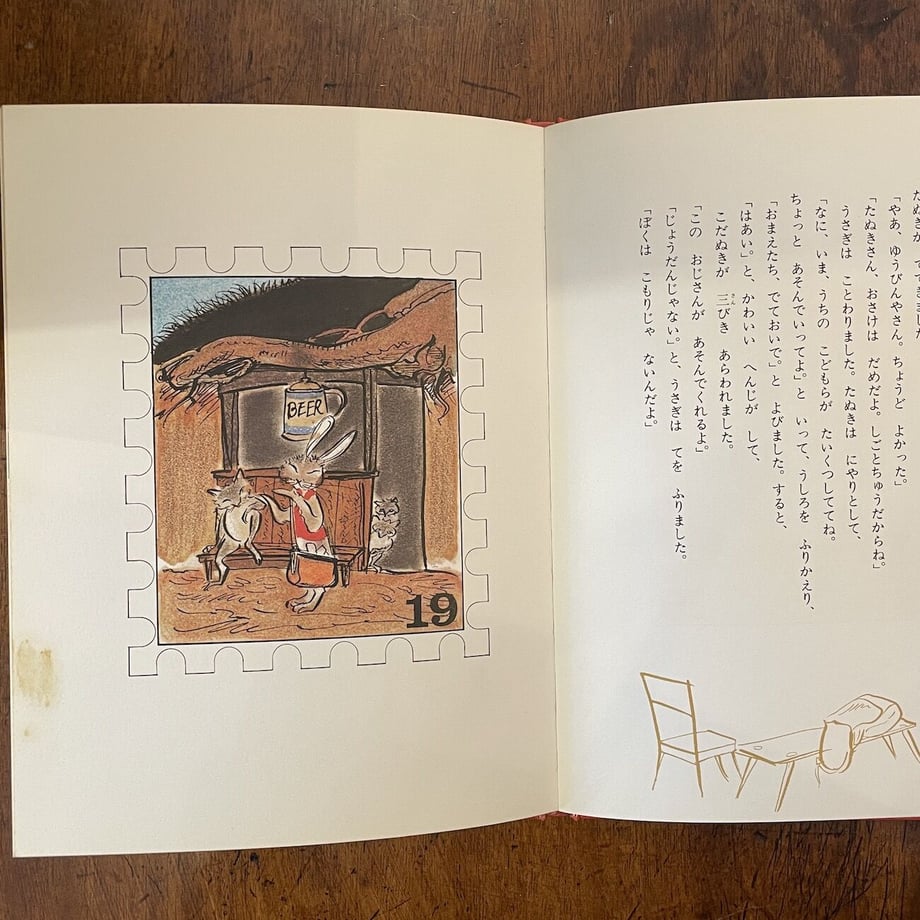 BEER
19
「やあ、ゆうびんやさん。ちょうど よかった。」
「たぬきさん、おさけは だめだよ。しごとちゅうだからね。」
うさぎは ことわりました。たぬきは にやりとして、
「なに、いま、うちの こどもらが たいくつしててね。
ちょっと あそんでいってよ。」と いって、うしろを ふりかえり、
「おまえたち、でておいで。」と よびました。すると、
「はあい。」と、かわいい へんじが して、
こだぬきが 三びき あらわれました。
「この おじさんが あそんでくれるよ。」
「じょうだんじゃない。」と、うさぎは てを ふりました。
「ぼくは こもりじゃ ないんだよ。」